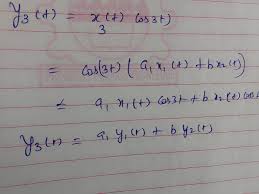 y₃(t) = x₃(t) cos3t
= cos(3t) (a₁x₁(t) + bx₂(t)
= a₁x₁(t) cos3t + bx₂(t) cos
y₃(t) = a₁y₁(t) + by₂(t)